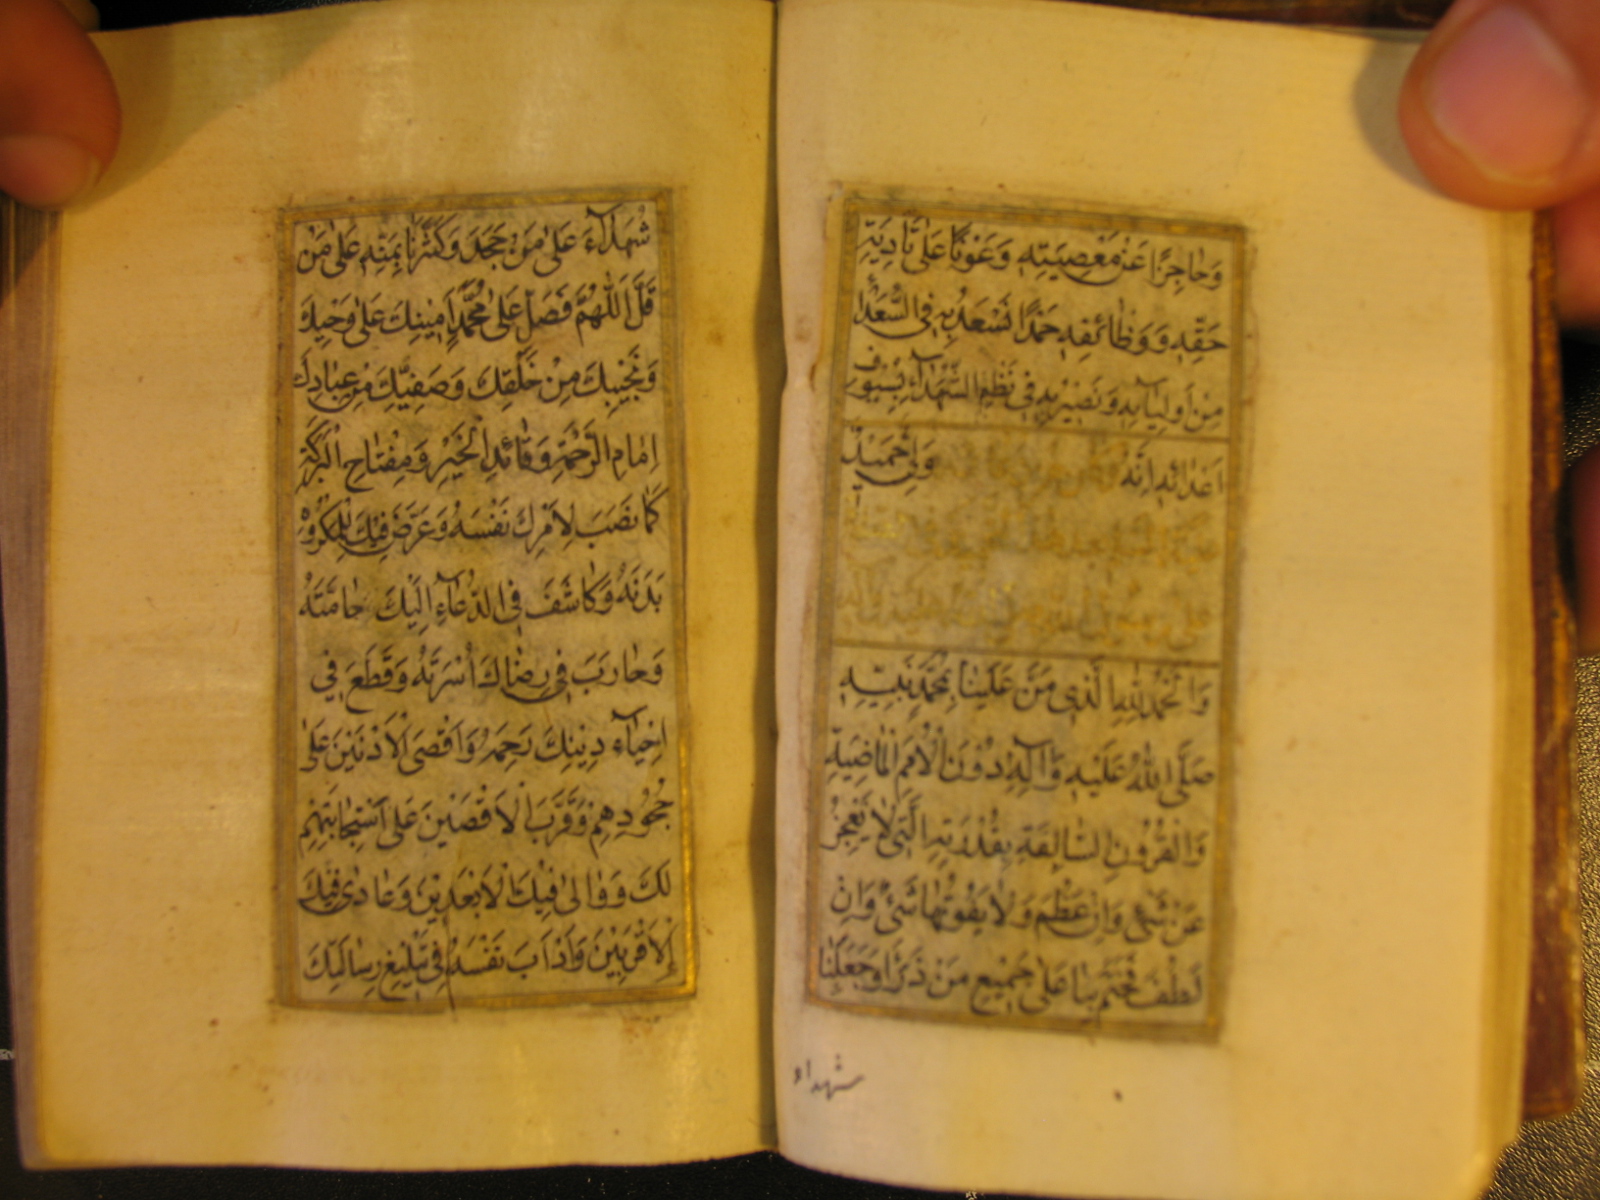 وَحاجِزًا عَنْ مَعْصِيَتِهِ وَعَوْنًا عَلى تَأدِيَةِ
حَقِّهِ وَوَظائفِهِ حَمْدًا نَسْعَدُ بِهِ فِى السُّعَدٰآءِ
مِنْ اَوْلِيٰآئِهِ وَنَصيرُ بِهِ فى نَظْمِ الشُّهَدٰآءِ بِسُيُوفِ
اَعْدائِهِ اِنَّهُ وَلِىٌّ حَميدٌ
وَالْحَمْدُ لِلّٰهِ الَّذى مَنَّ عَلَيْنا بِمُحَمَّدٍ نَبِيِّهِ
صَلَّى اللّٰهُ عَلَيْهِ وَآلِهِ دُونَ الْاُمَمِ الْماضِيَةِ
وَالْقُرُونِ السّالِفَةِ بِقُدْرَتِهِ الَّتى لا تَعْجِزُ
عَنْ شَىْءٍ وَاِنْ عَظُمَ وَلا يَفُوتُها شَىْءٌ وَاِنْ
لَطُفَ فَخَتَمَ بِنا عَلى جَميعِ مَنْ ذَرَاَ وَجَعَلَنا
شهداء
شُهَدٰآءَ عَلى مَنْ جَحَدَ وَكَثَّرَنا بِمَنِّهِ عَلى مَنْ
قَلَّ اَللّٰهُمَّ فَصَلِّ عَلى مُحَمَّدٍ اَمينِكَ عَلى وَحْيِكَ
وَنَجيبِكَ مِنْ خَلْقِكَ وَصَفِيِّكَ مِنْ عِبادِكَ
اِمامِ الرَّحْمَةِ وَقائِدِ الْخَيْرِ وَمِفْتاحِ الْبَرَكَةِ
كَما نَصَبَ لِاَمْرِكَ نَفْسَهُ وَعَرَّضَ فيكَ لِلْمَكْرُوهِ
بَدَنَهُ وَكاشَفَ فِى الدُّعٰآءِ اِلَيْكَ حامَّتَهُ
وَحارَبَ فى رِضاكَ اُسْرَتَهُ وَقَطَعَ فى
اِحْيٰآءِ دينِكَ رَحِمَهُ وَاَقْصَى الْاَدْنَيْنَ عَلى
جُحُودِهِمْ وَقَرَّبَ الْاَقْصَيْنَ عَلَى اسْتِجابَتِهِمْ
لَكَ وَوالى فيكَ الْاَبْعَدينَ وَعادى فيكَ
الْاَقْرَبينَ وَاَدْاَبَ نَفْسَهُ فى تَبْليغِ رِسالَتِكَ